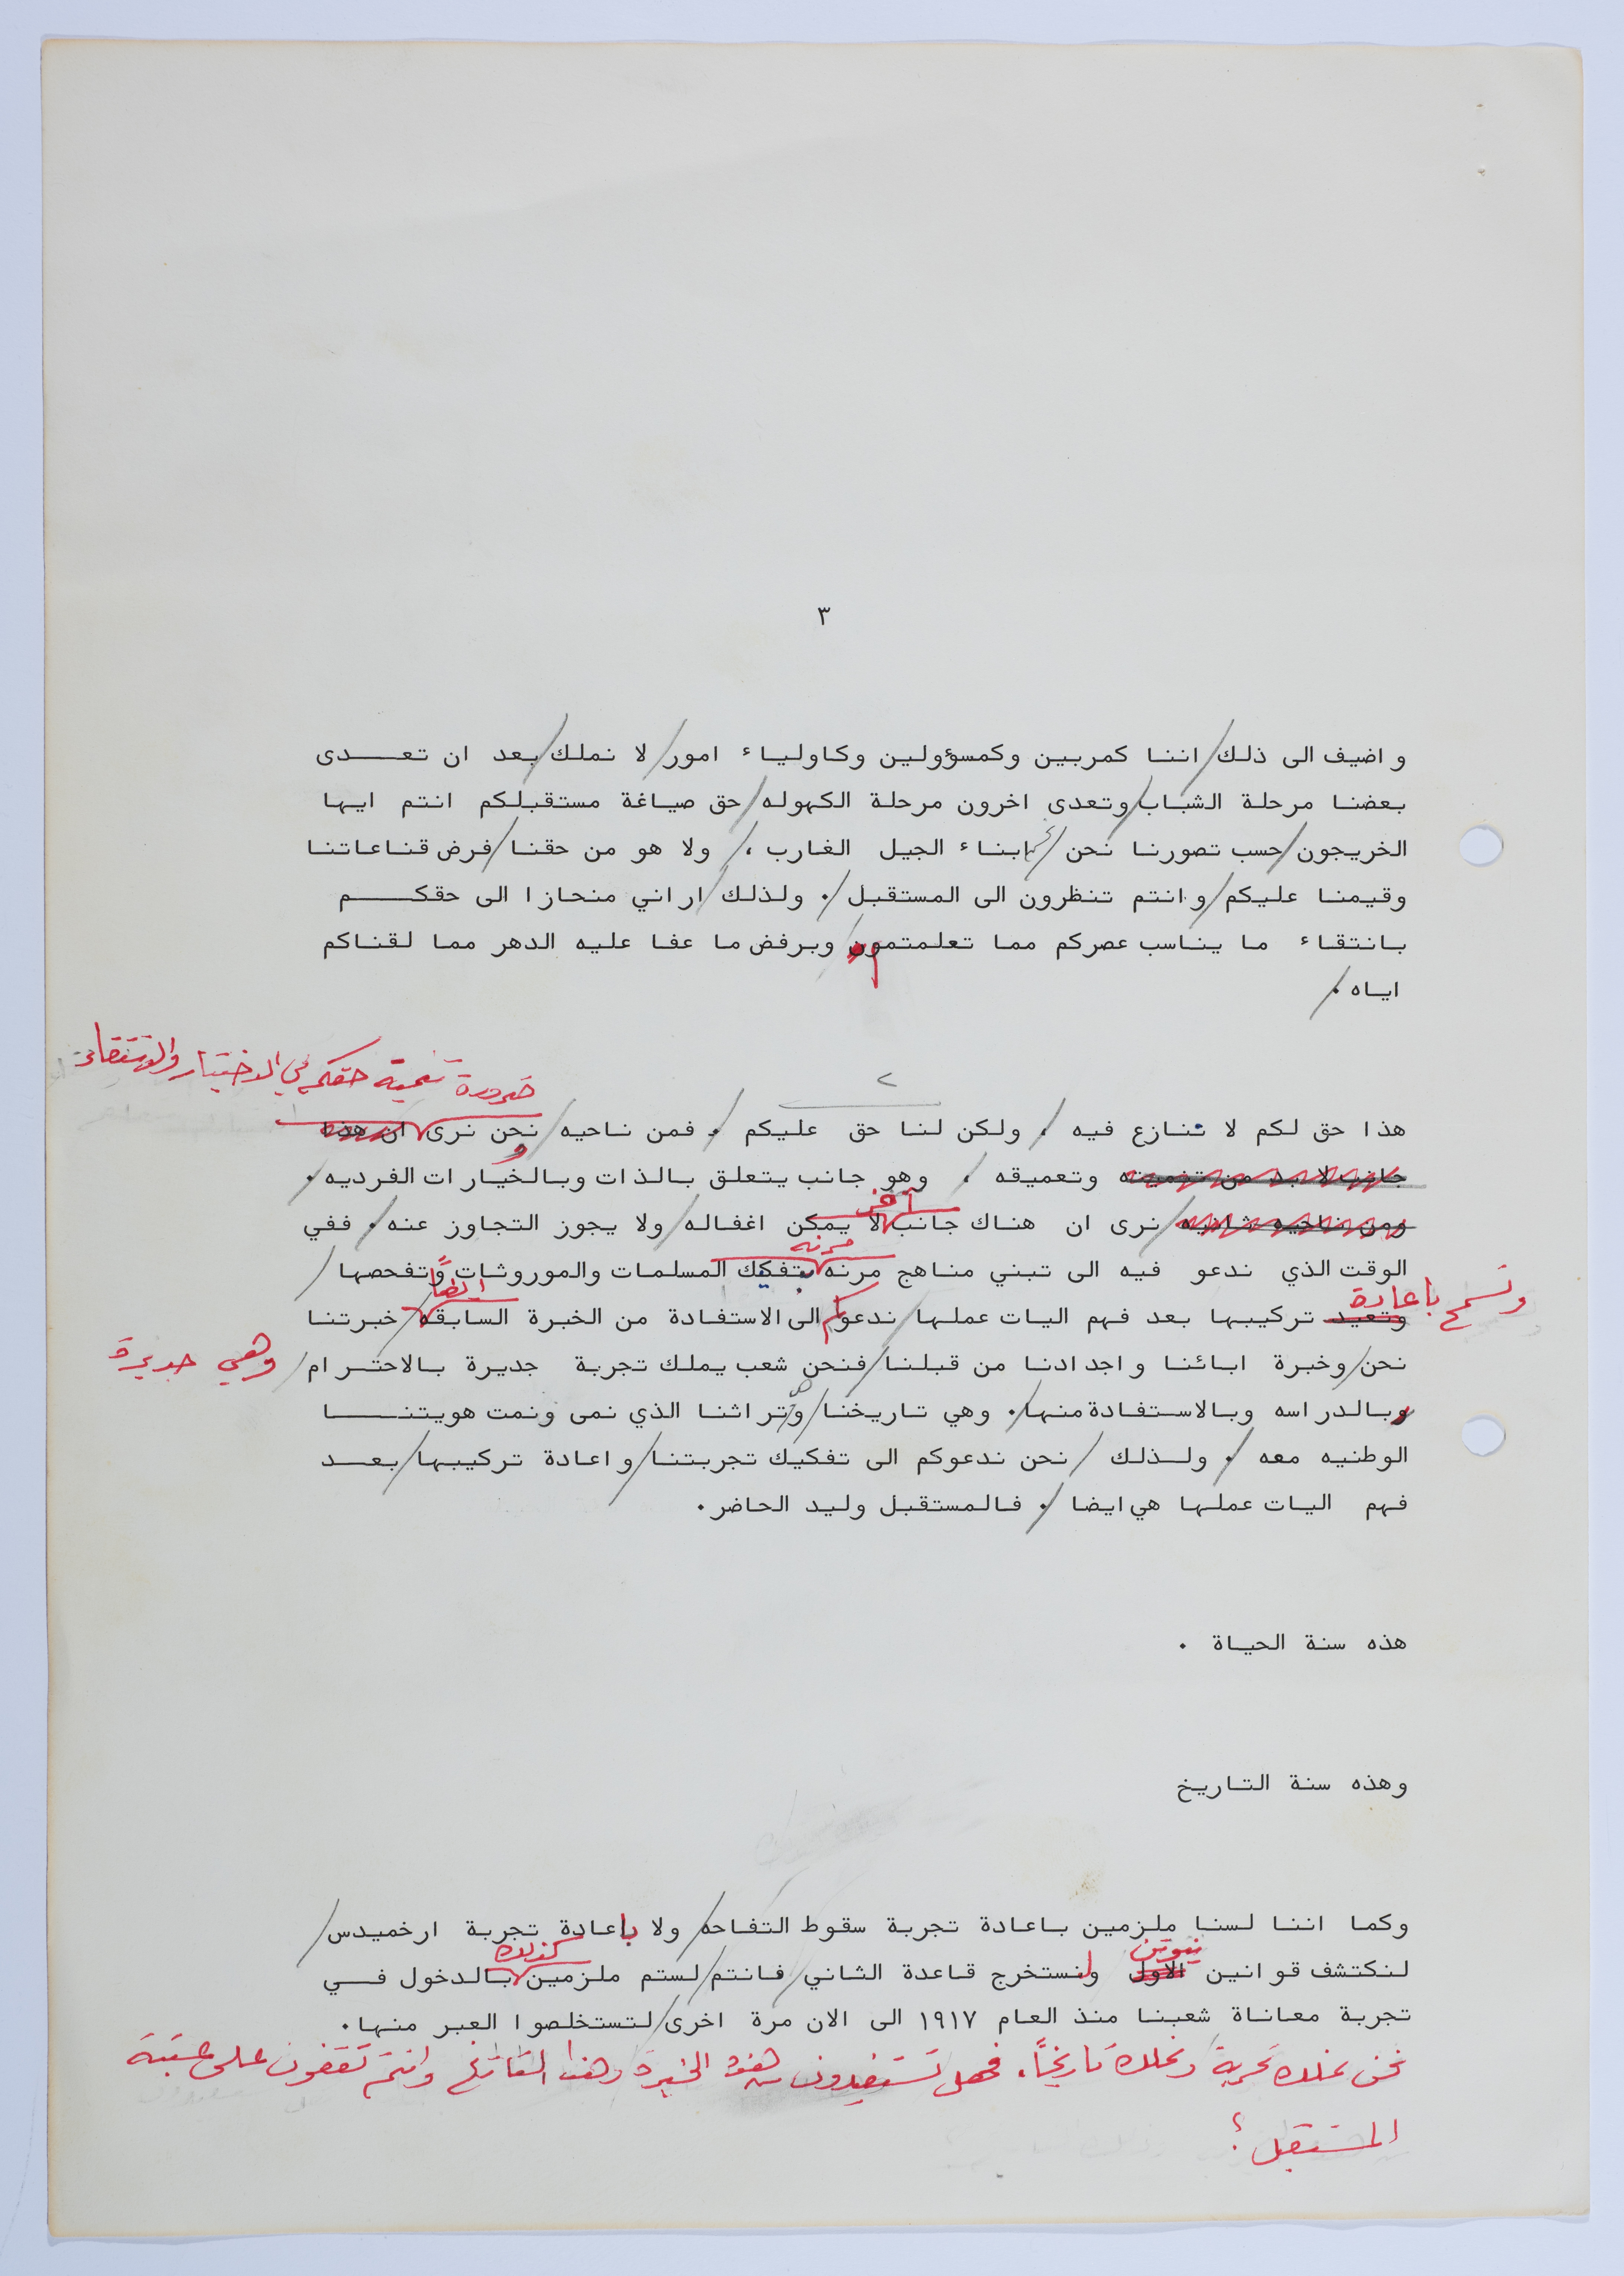 ٣
واضيف الى ذلك/ اننا كمربين وكمسؤولين وكاولياء امور/ لا نملك/ بعد ان تعدى
بعضنا مرحلة الشباب/ وتعدى اخرون مرحلة الكهوله/ حق صياغة مستقبلكم انتم ايها
الخريجون/ حسب تصورنا نحن/ ابناء الجيل الغارب ،/ ولا هو من حقنا/ فرض قناعاتنا
وقيمنا عليكم/ وانتم تنظرون الى المستقبل/. ولذلك/ اراني منحازا الى حقكم
بانتقاء ما يناسب عصركم مما تعلمتموه/ وبرفض ما عفا عليه الدهر مما لقناكم
اياه ./
ضرورة تنمية حقكم في الاختيار والانتقاء
٢
هذا حق لكم لا ننازع فيه/ ، ولكن لنا حق عليكم/ . فمن ناحيه/ نحن نرى ان هذا
جانب لا بد من تنميته وتعميقه ، وهو جانب يتعلق بالذات وبالخيارات الفرديه/.
آخر
ومن ناحيه ثانيه/ نرى ان هناك جانب لا يمكن اغفاله/ ولا يجوز التجاوز عنه/. ففي
مرنه
الوقت الذي ندعو فيه الى تبني مناهج مرنه بتفكيك المسلمات والموروثات وتفحصها/
وتسمح باعادة
ايضاً
وتعيد تركيبها بعد فهم اليات عملها/ ندعوكم الى الاستفادة من الخبرة السابقه/ خبرتنا
نحن/ وخبرة ابائنا واجدادنا من قبلنا/ فنحن شعب يملك تجربة جديرة بالاحترام/ وهي جديرة
وبالدراسه وبالاستفادة منها/. وهي تاريخنا/ وتراثنا الذي نمى ونمت هويتنا
الوطنيه معه/ . ولذلك/ نحن ندعوكم الى تفكيك تجربتنا/ واعادة تركيبها/ بعد
فهم اليات عملها هي ايضا/ . فالمستقبل وليد الحاضر.
هذه سنة الحياة .
وهذه سنة التاريخ
وكما اننا لسنا ملزمين باعادة تجربة سقوط التفاحه/ ولا باعادة تجربة ارخميدس/
نيوتن
كذلك
لنكتشف قوانين الاول ولنستخرج قاعدة الثاني/ فانتم/ لستم ملزمين بالدخول في
تجربة معاناة شعبنا منذ العام ١٩١٧ الى الان مرة اخرى/ لتستخلصوا العبر منها.
نحن نملك تجربة ونملك تاريخاً. فهل تستفيدون من هذه الخبرة وهذا التاريخ وانتم تقفون على عتبة
المستقبل؟